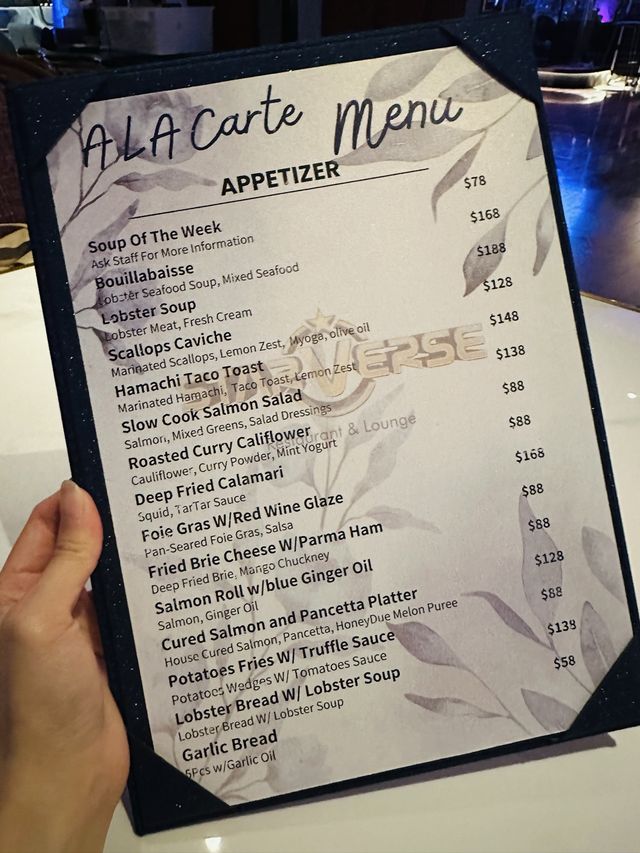 A LA Carte Menu
APPETIZER
Soup Of The Week $78
Ask Staff For More Information
Bouillabaisse $168
Lobster Seafood Soup, Mixed Seafood
Lobster Soup $188
Lobster Meat, Fresh Cream
Scallops Caviche $128
Marinated Scallops, Lemon Zest, Myoga, olive oil
Hamachi Taco Toast $148
Marinated Hamachi, Taco Toast, Lemon Zest
Slow Cook Salmon Salad $138
Salmon, Mixed Greens, Salad Dressings
Roasted Curry Califlower $88
Cauliflower, Curry Powder, Mint Yogurt
Deep Fried Calamari $88
Squid, TarTar Sauce
Foie Gras W/Red Wine Glaze $168
Pan-Seared Foie Gras, Salsa
Fried Brie Cheese W/Parma Ham $88
Deep Fried Brie, Mango Chuckney
Salmon Roll w/blue Ginger Oil $88
Salmon, Ginger Oil
Cured Salmon and Pancetta Platter $128
House Cured Salmon, Pancetta, HoneyDue Melon Puree
Potatoes Fries W/ Truffle Sauce $88
Potatoes Wedges W/ Tomatoes Sauce
Lobster Bread W/ Lobster Soup $138
Lobster Bread W/ Lobster Soup
Garlic Bread $58
5Pcs w/Garlic Oil
STARVERSE
Restaurant & Lounge